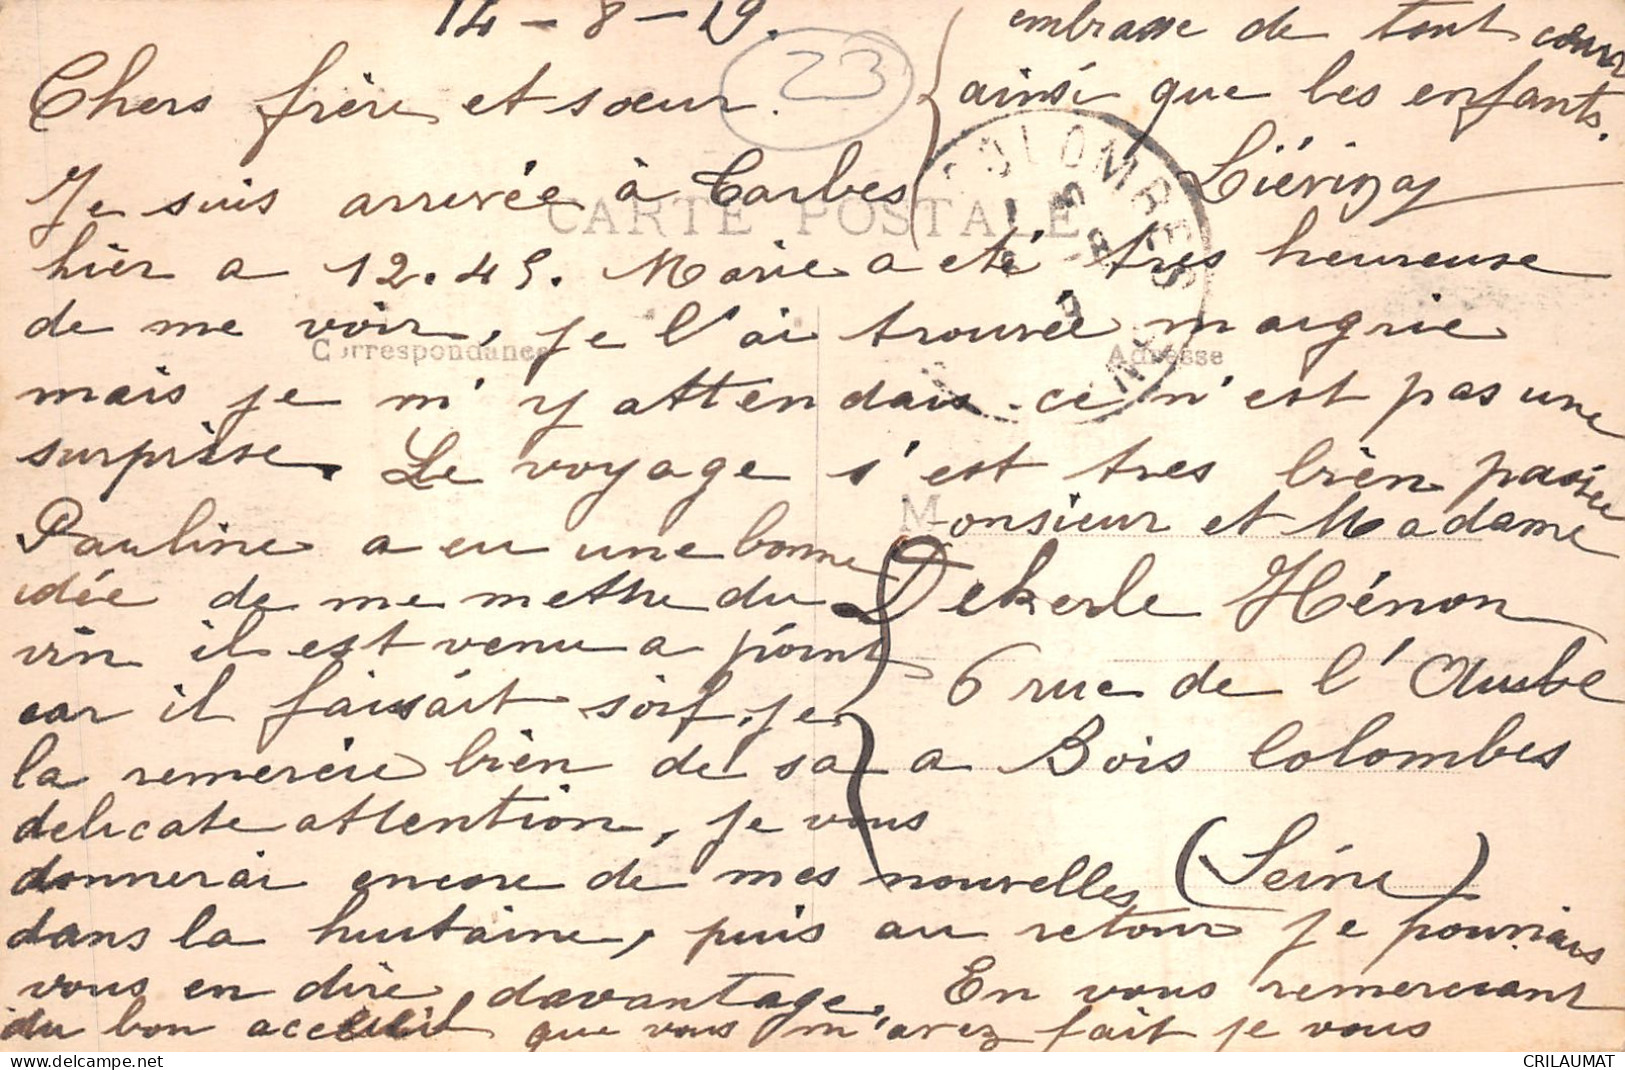 14-8-19.
Chers frère et sœur.
23
Je suis arrivée à Tarbes
hier a 12.45. Marie a eté très heureuse
de me voir, je l'ai trouvée maigrie
mais je m'y attendais ce n'est pas une
surprise. Le voyage s'est tres bien passée
Pauline a eu une bonne
idée de me methe du
vin il est venu a point
car il faisait soif, je
la remercie bien de sa
delicate attention, je vous
donnerai encore de mes nouvelles
dans la huitaine, puis au retour je pourriais
vous en dire davantage. En vous remerciant
du bon acceuil que vous m'avez fait je vous
embrasse de tout cœur
ainsi que les enfants.
CARTE POSTALE
Correspondance
Adresse
COLOMBES
Monsieur et Madame
Dekerle Hénon
6 rue de l'Aube
a Bois Colombes
(Seine)
delcampe.net
CRILAUMAT